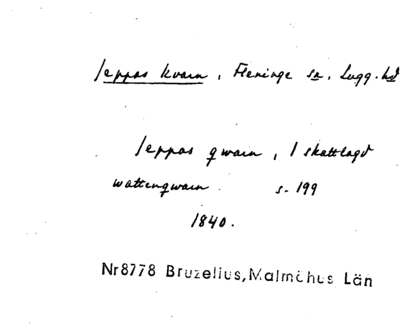 Jeppas kvarn, Fleninge sn, Lugg. hd
Jeppas qwarn, 1 skattlagd
wattenqwarn s. 199
1840.
Nr8778 Bruzelius, Malmöhus Län